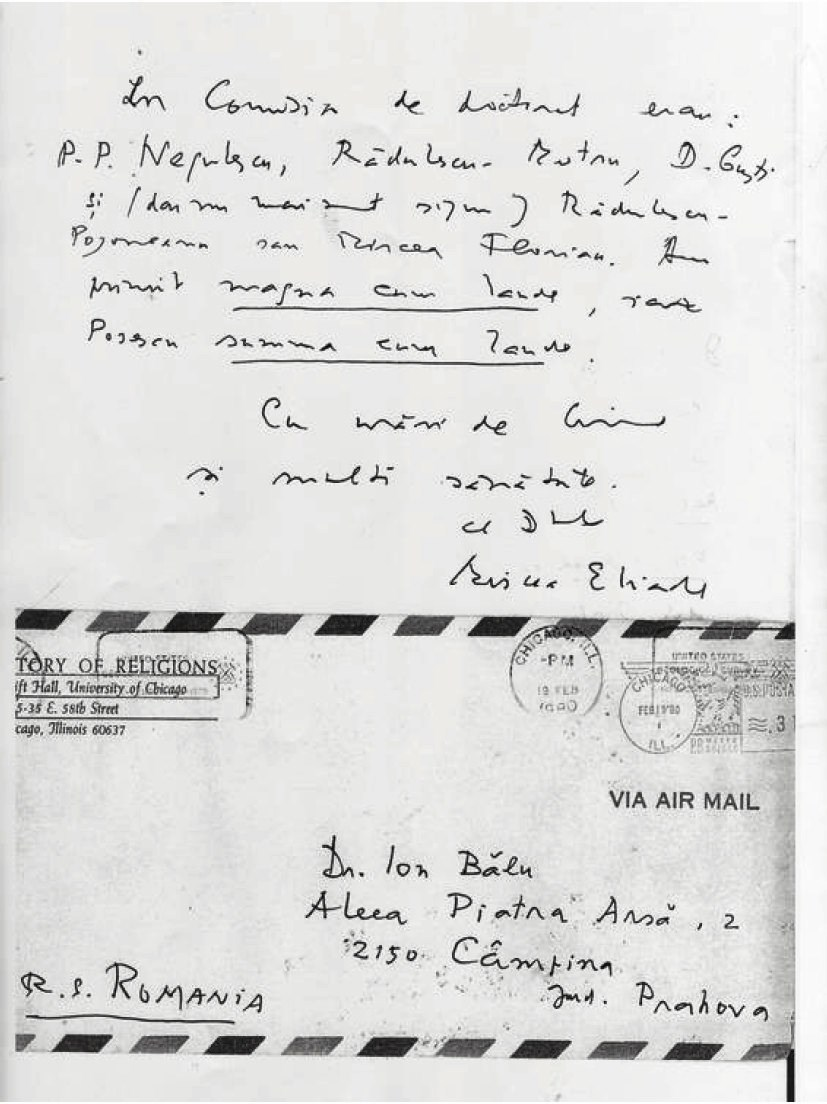 In Comisia de doctorat erau:
P. P. Negulescu, Rădulescu-Motru, D. Gusti
și (dar nu mai sunt sigur) Rădulescu-
Pogoneanu sau Mircea Florian. Am
primit magna cum laude, iar
Posescu summa cum laude.
Cu urări de bine
și multă sănătate.
al Dtale
Mircea Eliade
TORY OF RELIGIONS
ift Hall, University of Chicago
5-35 E. 58th Street
cago, Illinois 60637
CHICAGO, ILL.
-PM
19 FEB
1980
UNITED STATES
CHICAGO
FEB 19'80
ILL.
U.S. POSTA
VIA AIR MAIL
Dr. Ion Bălu
Aleea Piatra Arsă, 2
2150 Câmpina
Jud. Prahova
R.S. ROMANIA